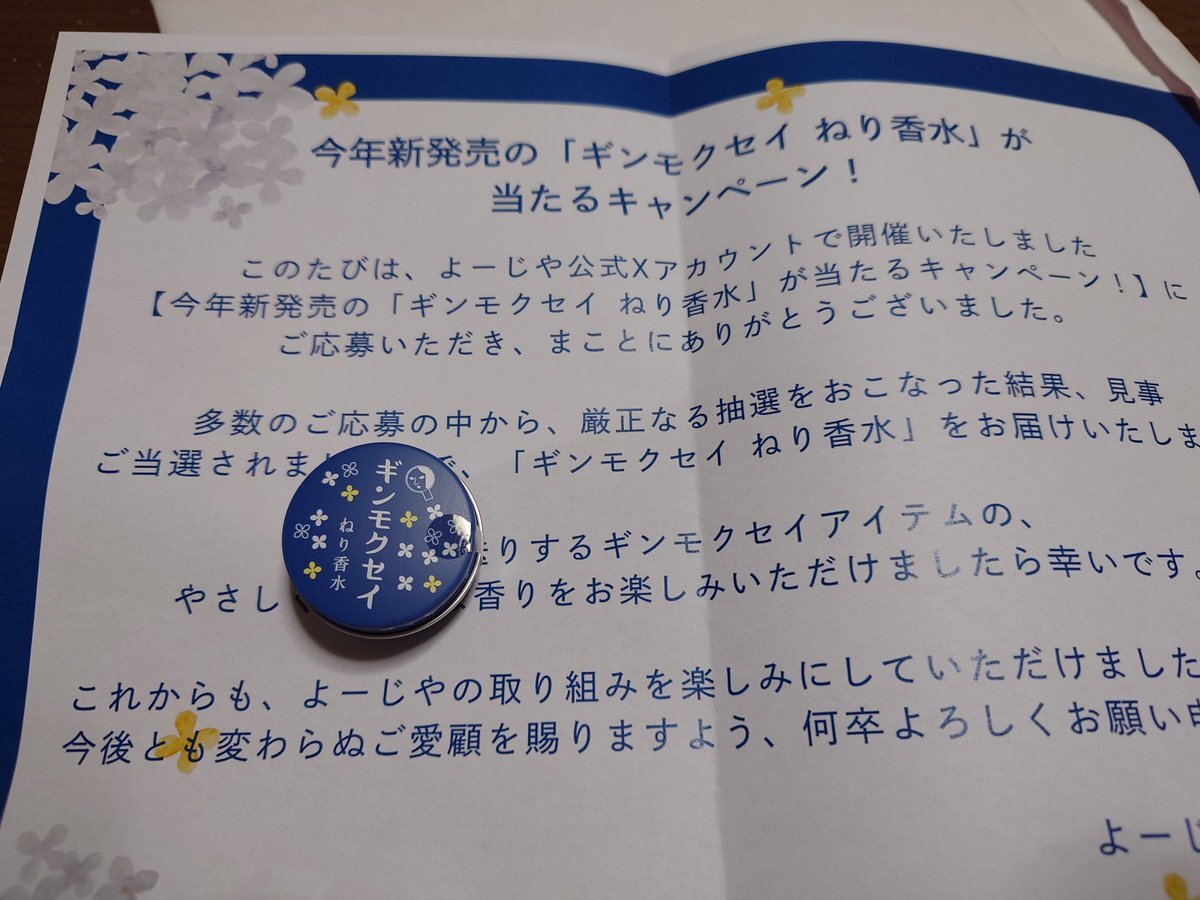 今年新発売の「ギンモクセイ ねり香水」が
当たるキャンペーン!
このたびは、よーじや公式Xアカウントで開催いたしました
【今年新発売の「ギンモクセイ ねり香水」が当たるキャンペーン!】に
ご応募いただき、まことにありがとうございました。
多数のご応募の中から、厳正なる抽選をおこなった結果、見事
ご当選されま で、「ギンモクセイ ねり香水」をお届けいたしま
りするギンモクセイアイテムの、
やさし 香りをお楽しみいただけましたら幸いです。
これからも、よーじやの取り組みを楽しみにしていただけました
今後とも変わらぬご愛顧を賜りますよう、何卒よろしくお願い
よーじ
ギンモクセイ
ねり香水